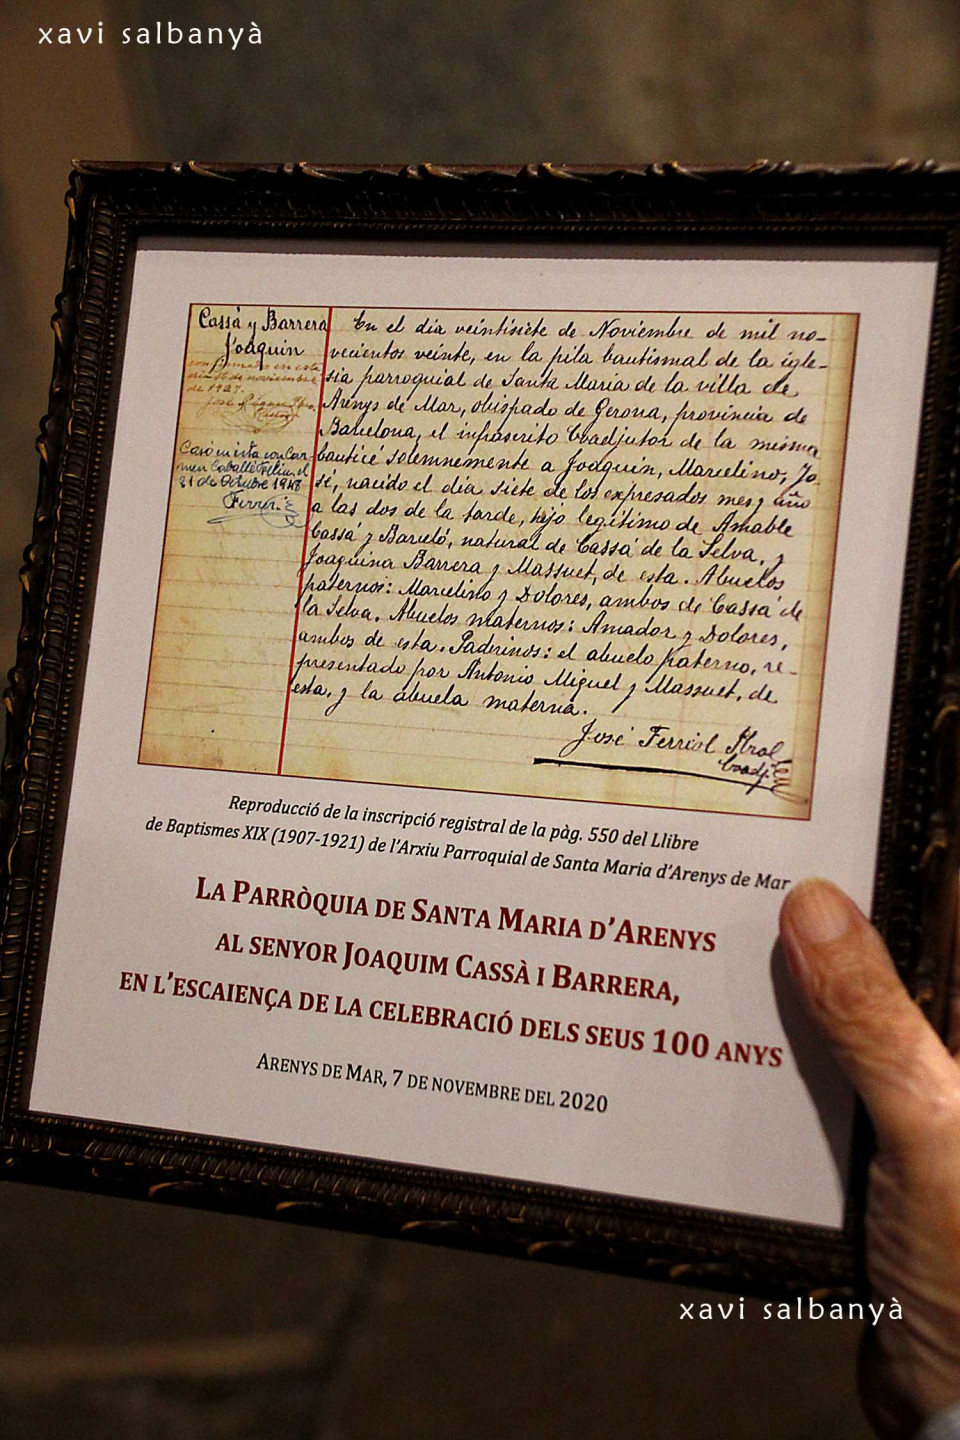 xavi salbanyà
Cassá y Barrera
Joaquin
de 1927.
Casó en esta con Car-
men Caballé Feliu, el
21 de Octubre 1948
Ferrer.
En el dia veintisiete de Noviembre de mil no-
vecientos veinte, en la pila bautismal de la igle-
sia parroquial de Santa Maria de la villa de
Arenys de Mar, obispado de Gerona, provincia de
Barcelona, el infrascrito Coadjutor de la misma
bauticé solemnemente a Joaquin, Marcelino, Jo-
sé, nacido el dia siete de los expresados mes y año
a las dos de la tarde, hijo legítimo de Amable
Cassá y Barceló, natural de Cassá de la Selva, y
Joaquina Barrera y Massuet, de esta. Abuelos
paternos: Marcelino y Dolores, ambos de Cassá de
la Selva. Abuelos maternos: Amador y Dolores,
ambos de esta. Padrinos: el abuelo paterno, re-
presentado por Antonio Miguel y Massuet, de
esta, y la abuela materna.
José Ferriol Pbro
Coadj.
Reproducció de la inscripció registral de la pàg. 550 del Llibre
de Baptismes XIX (1907-1921) de l'Arxiu Parroquial de Santa Maria d'Arenys de Mar
LA PARRÒQUIA DE SANTA MARIA D'ARENYS
AL SENYOR JOAQUIM CASSÀ I BARRERA,
EN L'ESCAIENÇA DE LA CELEBRACIÓ DELS SEUS 100 ANYS
ARENYS DE MAR, 7 DE NOVEMBRE DEL 2020
xavi salbanyà